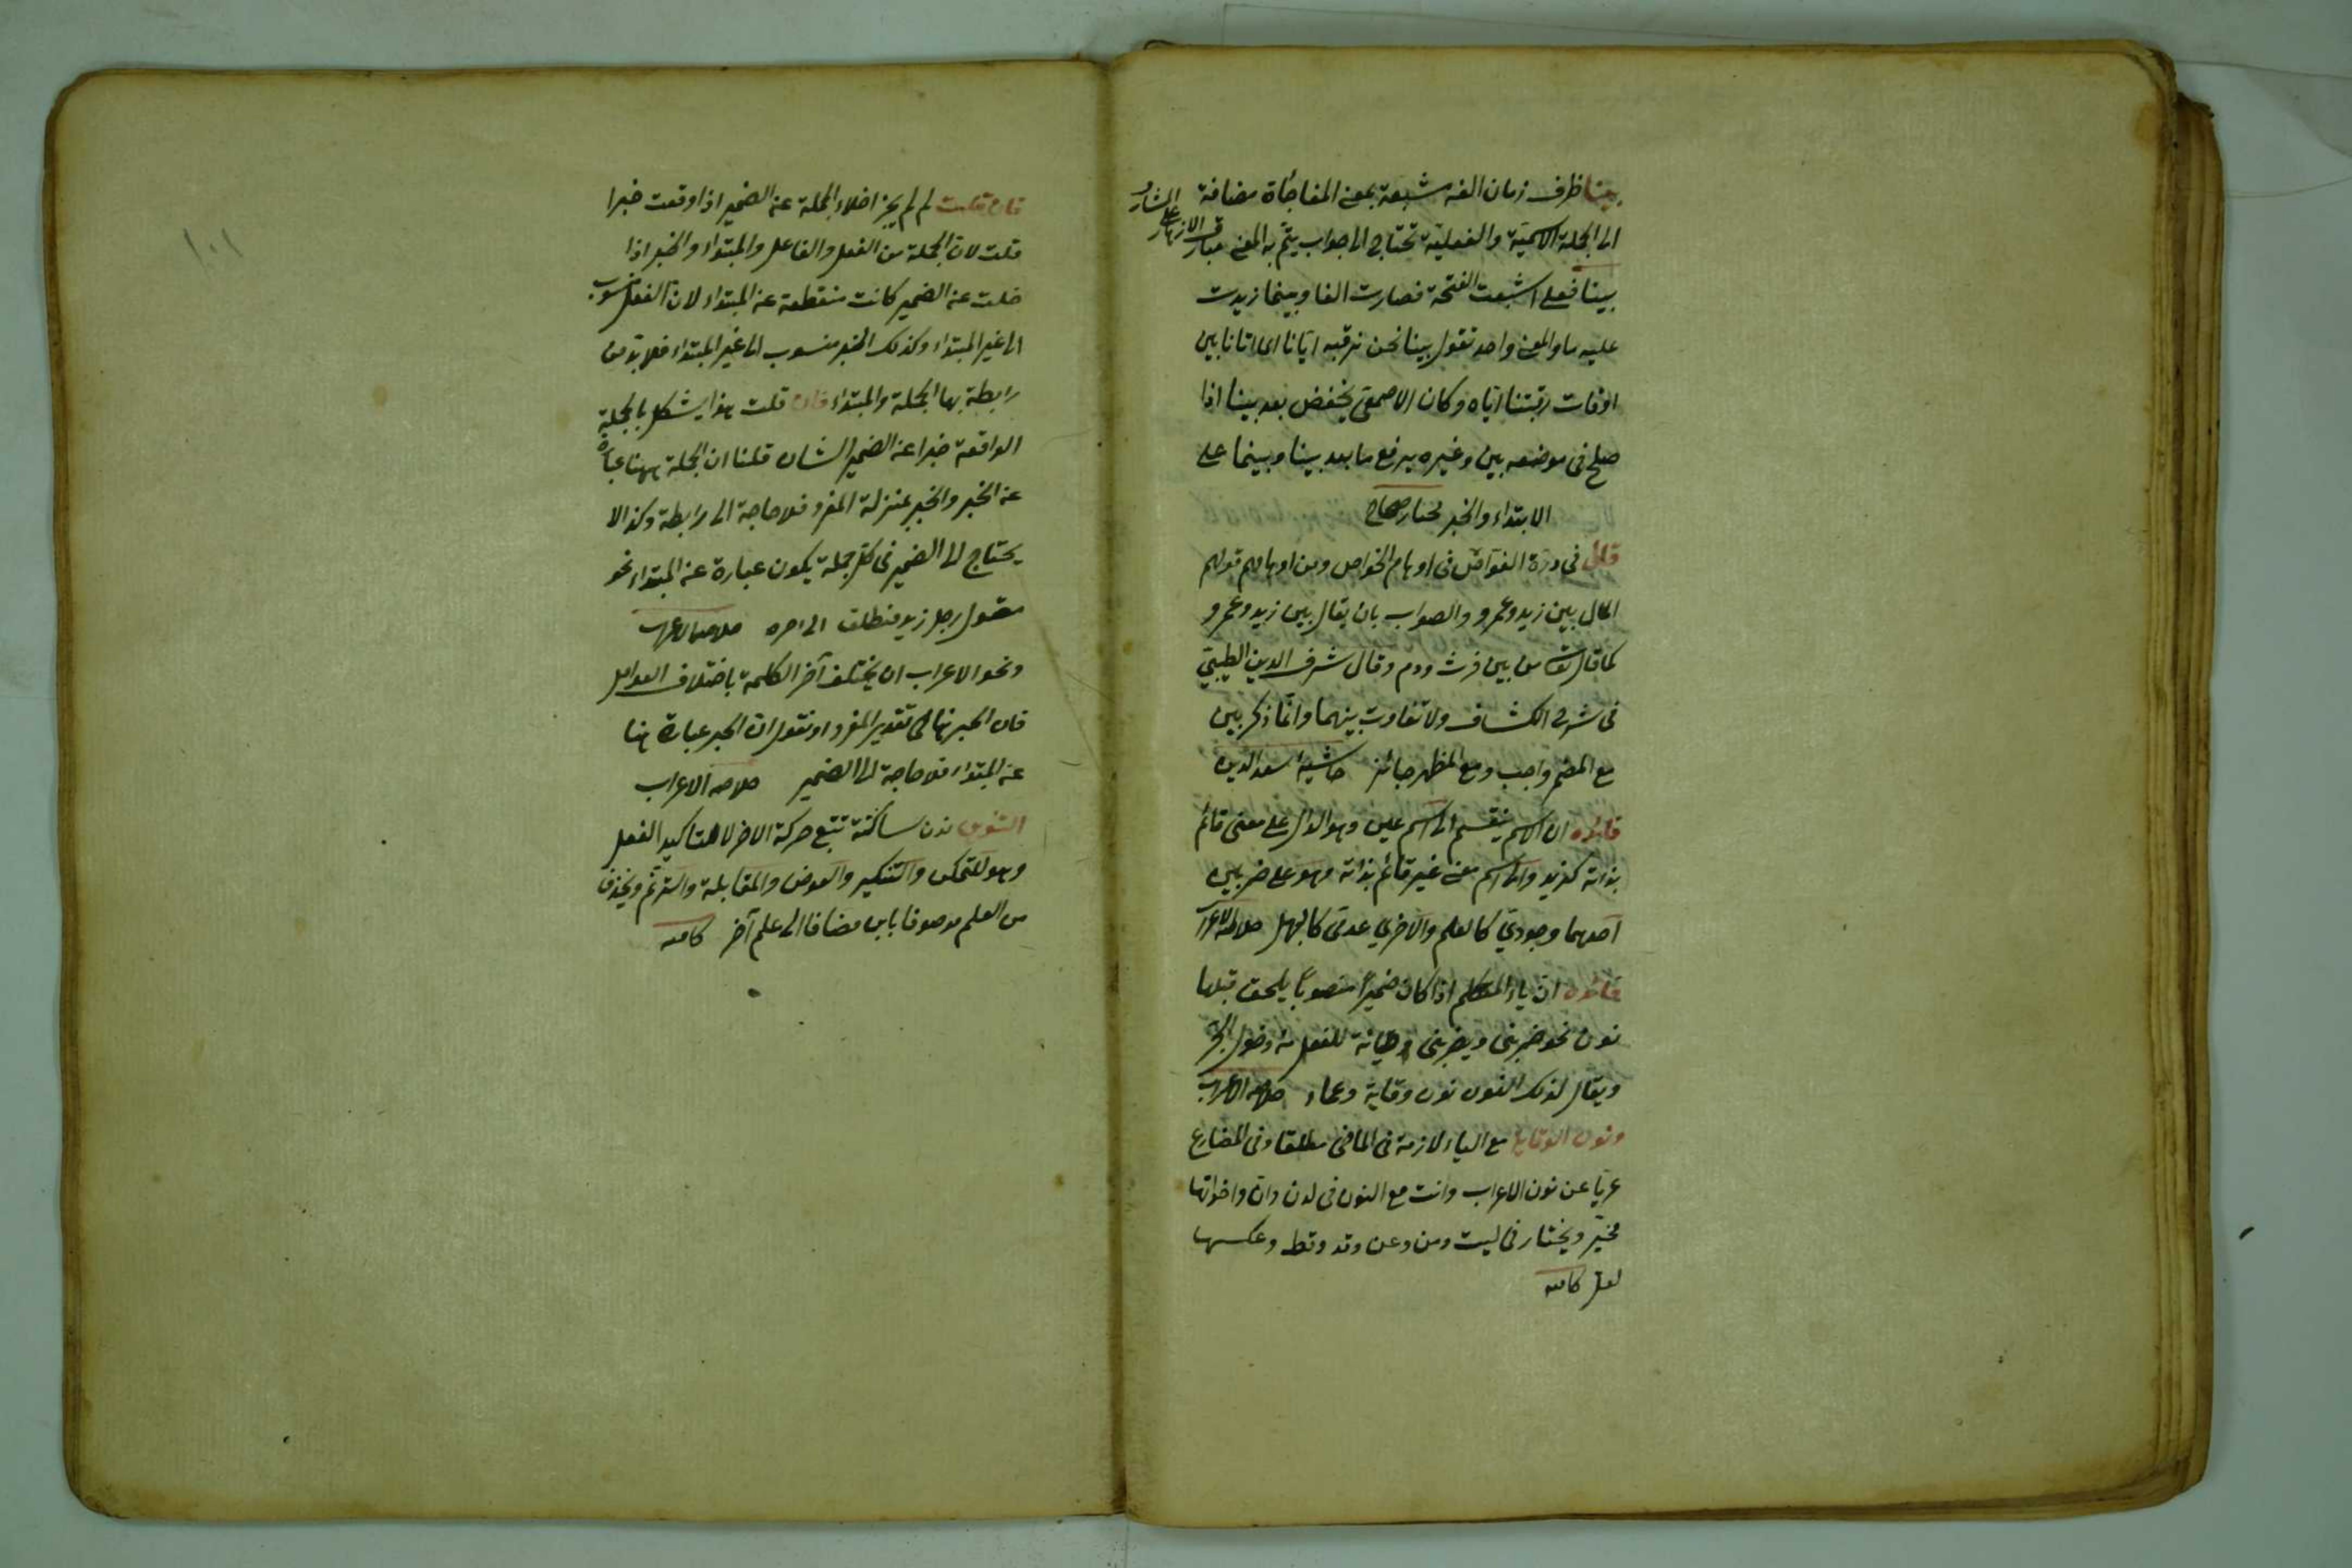 بينا ظرف زمان الفه مشبعة بمعنى المفاجأة مضافة
الى الجملة الاسمية والفعلية تحتاج الى جواب يتم به المعنى مبارق الازهار على المشارق
بينا فعلى اشبعت الفتحة فصارت الفا وبينما زيدت
عليه ما والمعنى واحد تقول بينا نحن نرقبه اتانا اى اتانا بين
اوقات رقبتنا اياه وكان الاصمعى يخفض بعد بينا اذا
صلح فى موضعه بين وغيره يرفع ما بعد بينا وبينما على
الابتداء والخبر مختار صحاح
قال فى درة الغواص فى اوهام الخواص ومن اوهامهم قولهم
المال بين زيد وعمرو والصواب بان يقال بين زيد وعمرو
كما قال تعالى من بين فرث ودم وقال شرف الدين الطيبى
فى شرح الكشاف ولا تفاوت بينهما وانما ذكر بين
مع المضمر واجب ومع المظهر جائز حاشية سعد الدين
فائده ان الاسم ينقسم الى اسم عين وهو الدال على معنى قائم
بذاته كزيد والى اسم معنى غير قائم بذاته وهو على ضربين
احدهما وجودي كالعلم والاخرى عدمى كالجهل خلاصة الاعراب
فائده ان ياء المتكلم اذا كان ضميرا منصوبا يلحق قبلها
نون نحو ضربنى ويضربنى صيانة للفعل من دخول الجر
ويقال لذلك النون نون وقاية وعماد خلاصة الاعراب
ونون الوقاية مع الياء لازمة فى الماضى مطلقا وفى المضارع
عريا عن نون الاعراب وانت مع النون فى لدن وان واخواتها
مخير ويختار فى ليت ومن وعن وقد وقط وعكسها
لعل كافيه
١٠١
فان قلت لم لم يجز اخلاء الجملة عن الضمير اذا وقعت خبرا
قلت لان الجملة من الفعل والفاعل والمبتداء والخبر اذا
خلت عن الضمير كانت منقطعة عن المبتداء لان الفعل منسوب
الى غير المبتداء وكذلك الخبر منسوب الى غير المبتداء فلا بد من
رابطة بها الجملة والمبتداء فان قلت هذا يشكل بالجملة
الواقعة خبرا عن الضمير الشان قلنا ان الجملة ههنا عبارة
عن الخبر والخبر بمنزلة المفرد فلا حاجة الى رابطة وكذا لا
يحتاج الى الضمير فى كل جملة يكون عبارة عن المبتداء نحو
مقول رجل زيد منطلق الى اخره خلاصة الاعراب
ونحو الاعراب ان يختلف آخر الكلمة باختلاف العوامل
فان الخبر هنا فى تقدير المفرد او نقول ان الخبر عبارة هنا
عن المبتداء فلا حاجة الى الضمير خلاصة الاعراب
التنوين نون ساكنة تتبع حركة الاخر لا لتاكيد الفعل
وهو للتمكن والتنكير والعوض والمقابلة والترنم ويحذف
من العلم موصوفا بابن مضافا الى علم آخر كافيه